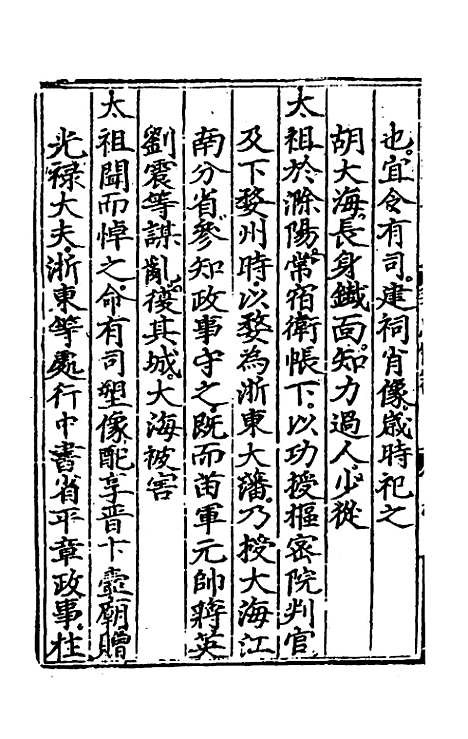 也宜令有司建祠肖像歲時祀之
胡大海長身鐵面知力過人少從
太祖於滁陽常宿衛帳下以功授樞密院判官
及下婺州時以婺為浙東大藩乃授大海江
南分省參知政事守之既而苗軍元帥蔣英
劉震等謀亂襲其城大海被害
太祖聞而悼之命有司塑像配享晉卞壼廟贈
光祿大夫浙東等處行中書省平章政事柱